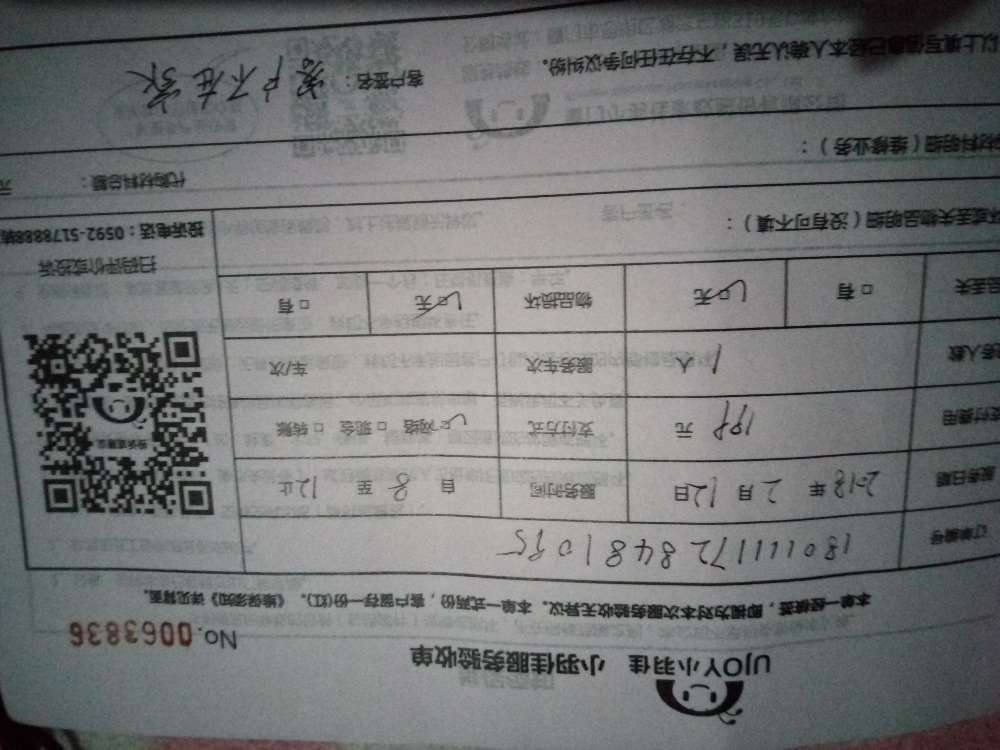 UJOY小羽佳 小羽佳服务验收单
No.0063836
本单一经接签，即视为对本次服务验收无异议。本单一式两份，客户留存一份(红)。《维保须知》详见背面。
订单编号
服务日期 2018年2月12日 服务时间 自8至12止
支付费用 199元 支付方式 网络 □现金 □转账
务人数 1人 服务车次 车/次
品丢失 □有 □无 物品损坏 □无 □有
坏或丢失物品明细（没有可不填）：
扫码评价或投诉
投诉电话：0592-5178888转
材料明细（维修业务）：
代购材料总额： 元
以上填写信息已经本人确认无误，不存在任何争议纠纷。 客户签名：客户不在家